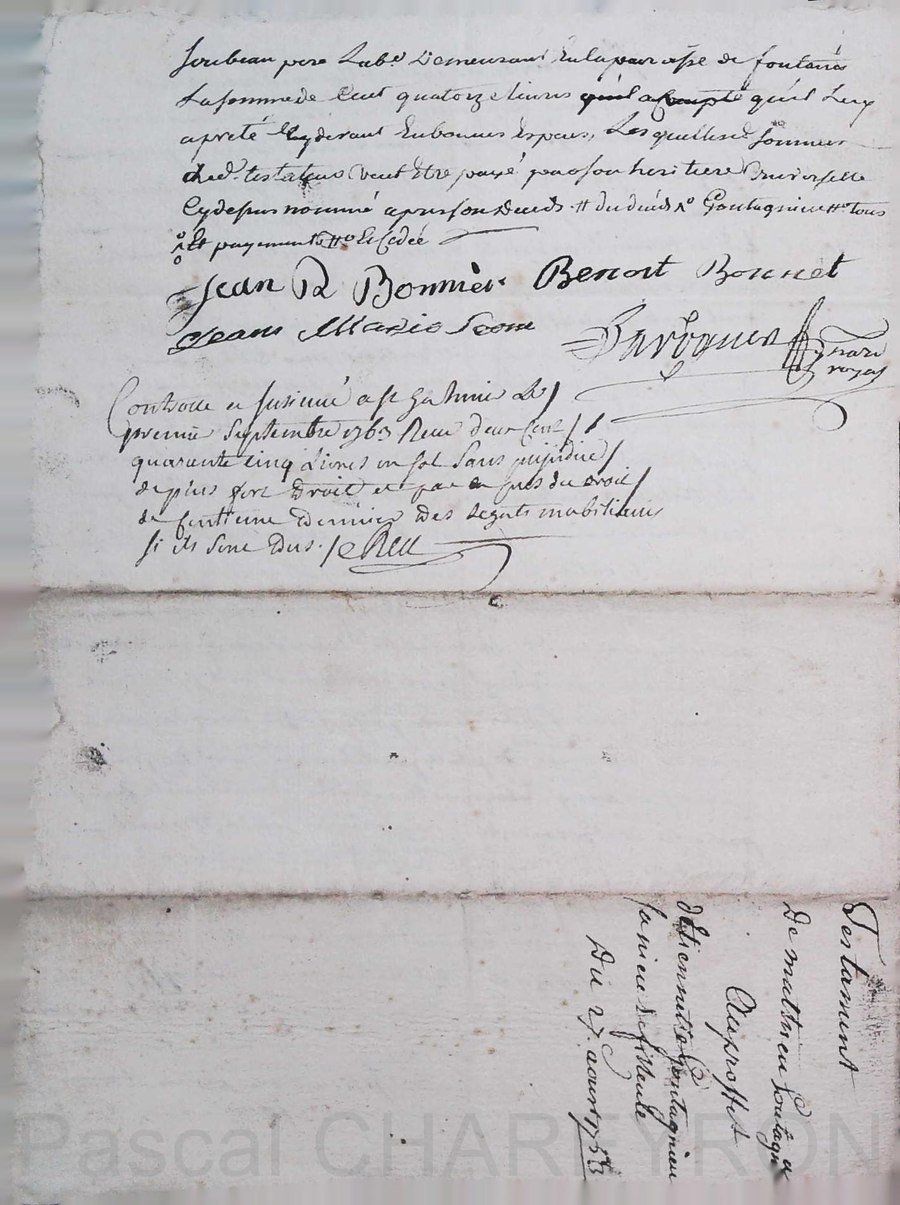 son beau pere Lab.r Demeurant En la parroisse de fontanès
La somme de Cent quatorze livres qu'il a Compté qu'il Luy
a preté Cydevant En bonnes Especes, Lesquelles sommes
Led. testateur veut Etre payé par son heritiere Universelle
Cydessus nommé apres son deceds
et payement
Jean Bonnier Benoit Bonnet
Jean Marie
notaire
royal
Controllé et Insinué a St Galmier Le
premier Septembre 1763 Receu deux Cent
quarante Cinq Livres un sol Sans prejudice
de plus fort Droit et par du droit
de Centieme Denier Des legats mobiliers
si ils sont Dus.
Testament
De matthieu
Auproffit
d'Etiennette goutagnieu
sa niece
Du 27. aoust 1763
Pascal CHAREYRON